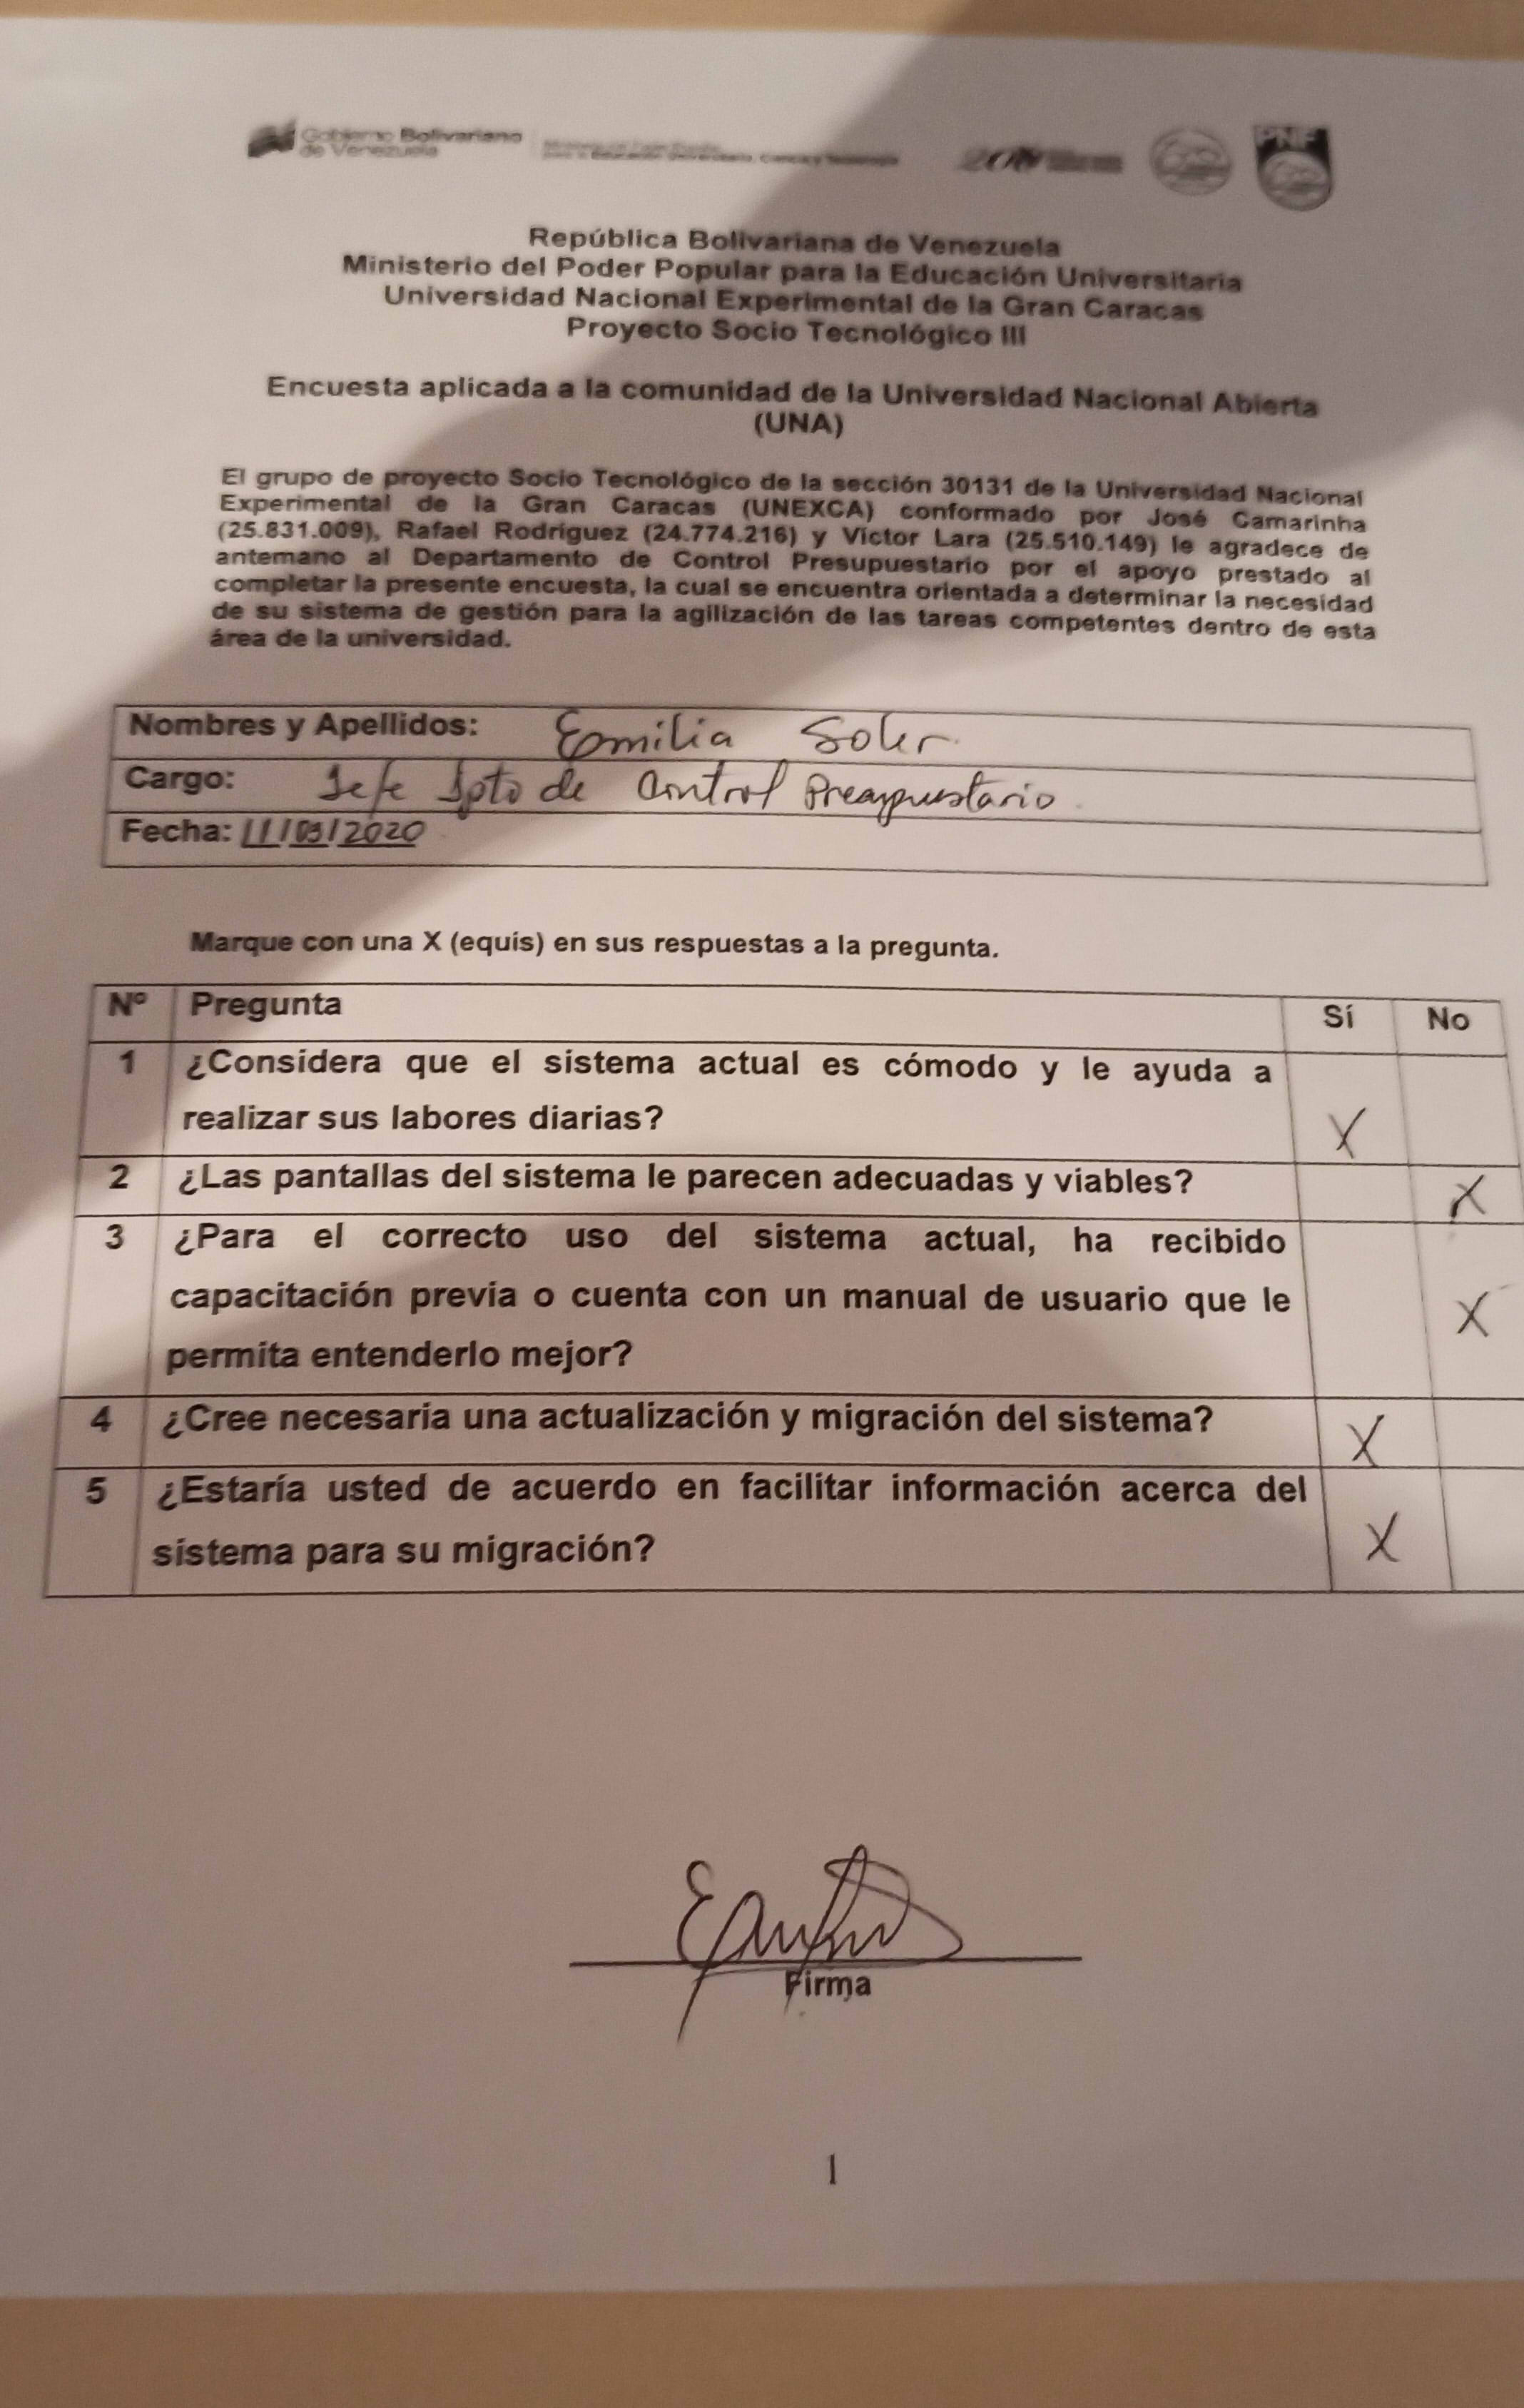 Gobierno Bolivariano
de Venezuela
PNF
República Bolivariana de Venezuela
Ministerio del Poder Popular para la Educación Universitaria
Universidad Nacional Experimental de la Gran Caracas
Proyecto Socio Tecnológico III
Encuesta aplicada a la comunidad de la Universidad Nacional Abierta
(UNA)
El grupo de proyecto Socio Tecnológico de la sección 30131 de la Universidad Nacional
Experimental de la Gran Caracas (UNEXCA) conformado por José Camarinha
(25.831.009), Rafael Rodríguez (24.774.216) y Víctor Lara (25.510.149) le agradece de
antemano al Departamento de Control Presupuestario por el apoyo prestado al
completar la presente encuesta, la cual se encuentra orientada a determinar la necesidad
de su sistema de gestión para la agilización de las tareas competentes dentro de esta
área de la universidad.
Nombres y Apellidos: Emilia Soler
Cargo: Jefe Dpto de Control Presupuestario
Fecha: 11/03/2020
Marque con una X (equis) en sus respuestas a la pregunta.
Nº Pregunta Sí No
1 ¿Considera que el sistema actual es cómodo y le ayuda a
realizar sus labores diarias? X
2 ¿Las pantallas del sistema le parecen adecuadas y viables? X
3 ¿Para el correcto uso del sistema actual, ha recibido
capacitación previa o cuenta con un manual de usuario que le X
permita entenderlo mejor?
4 ¿Cree necesaria una actualización y migración del sistema? X
5 ¿Estaría usted de acuerdo en facilitar información acerca del
sistema para su migración? X
Firma
1